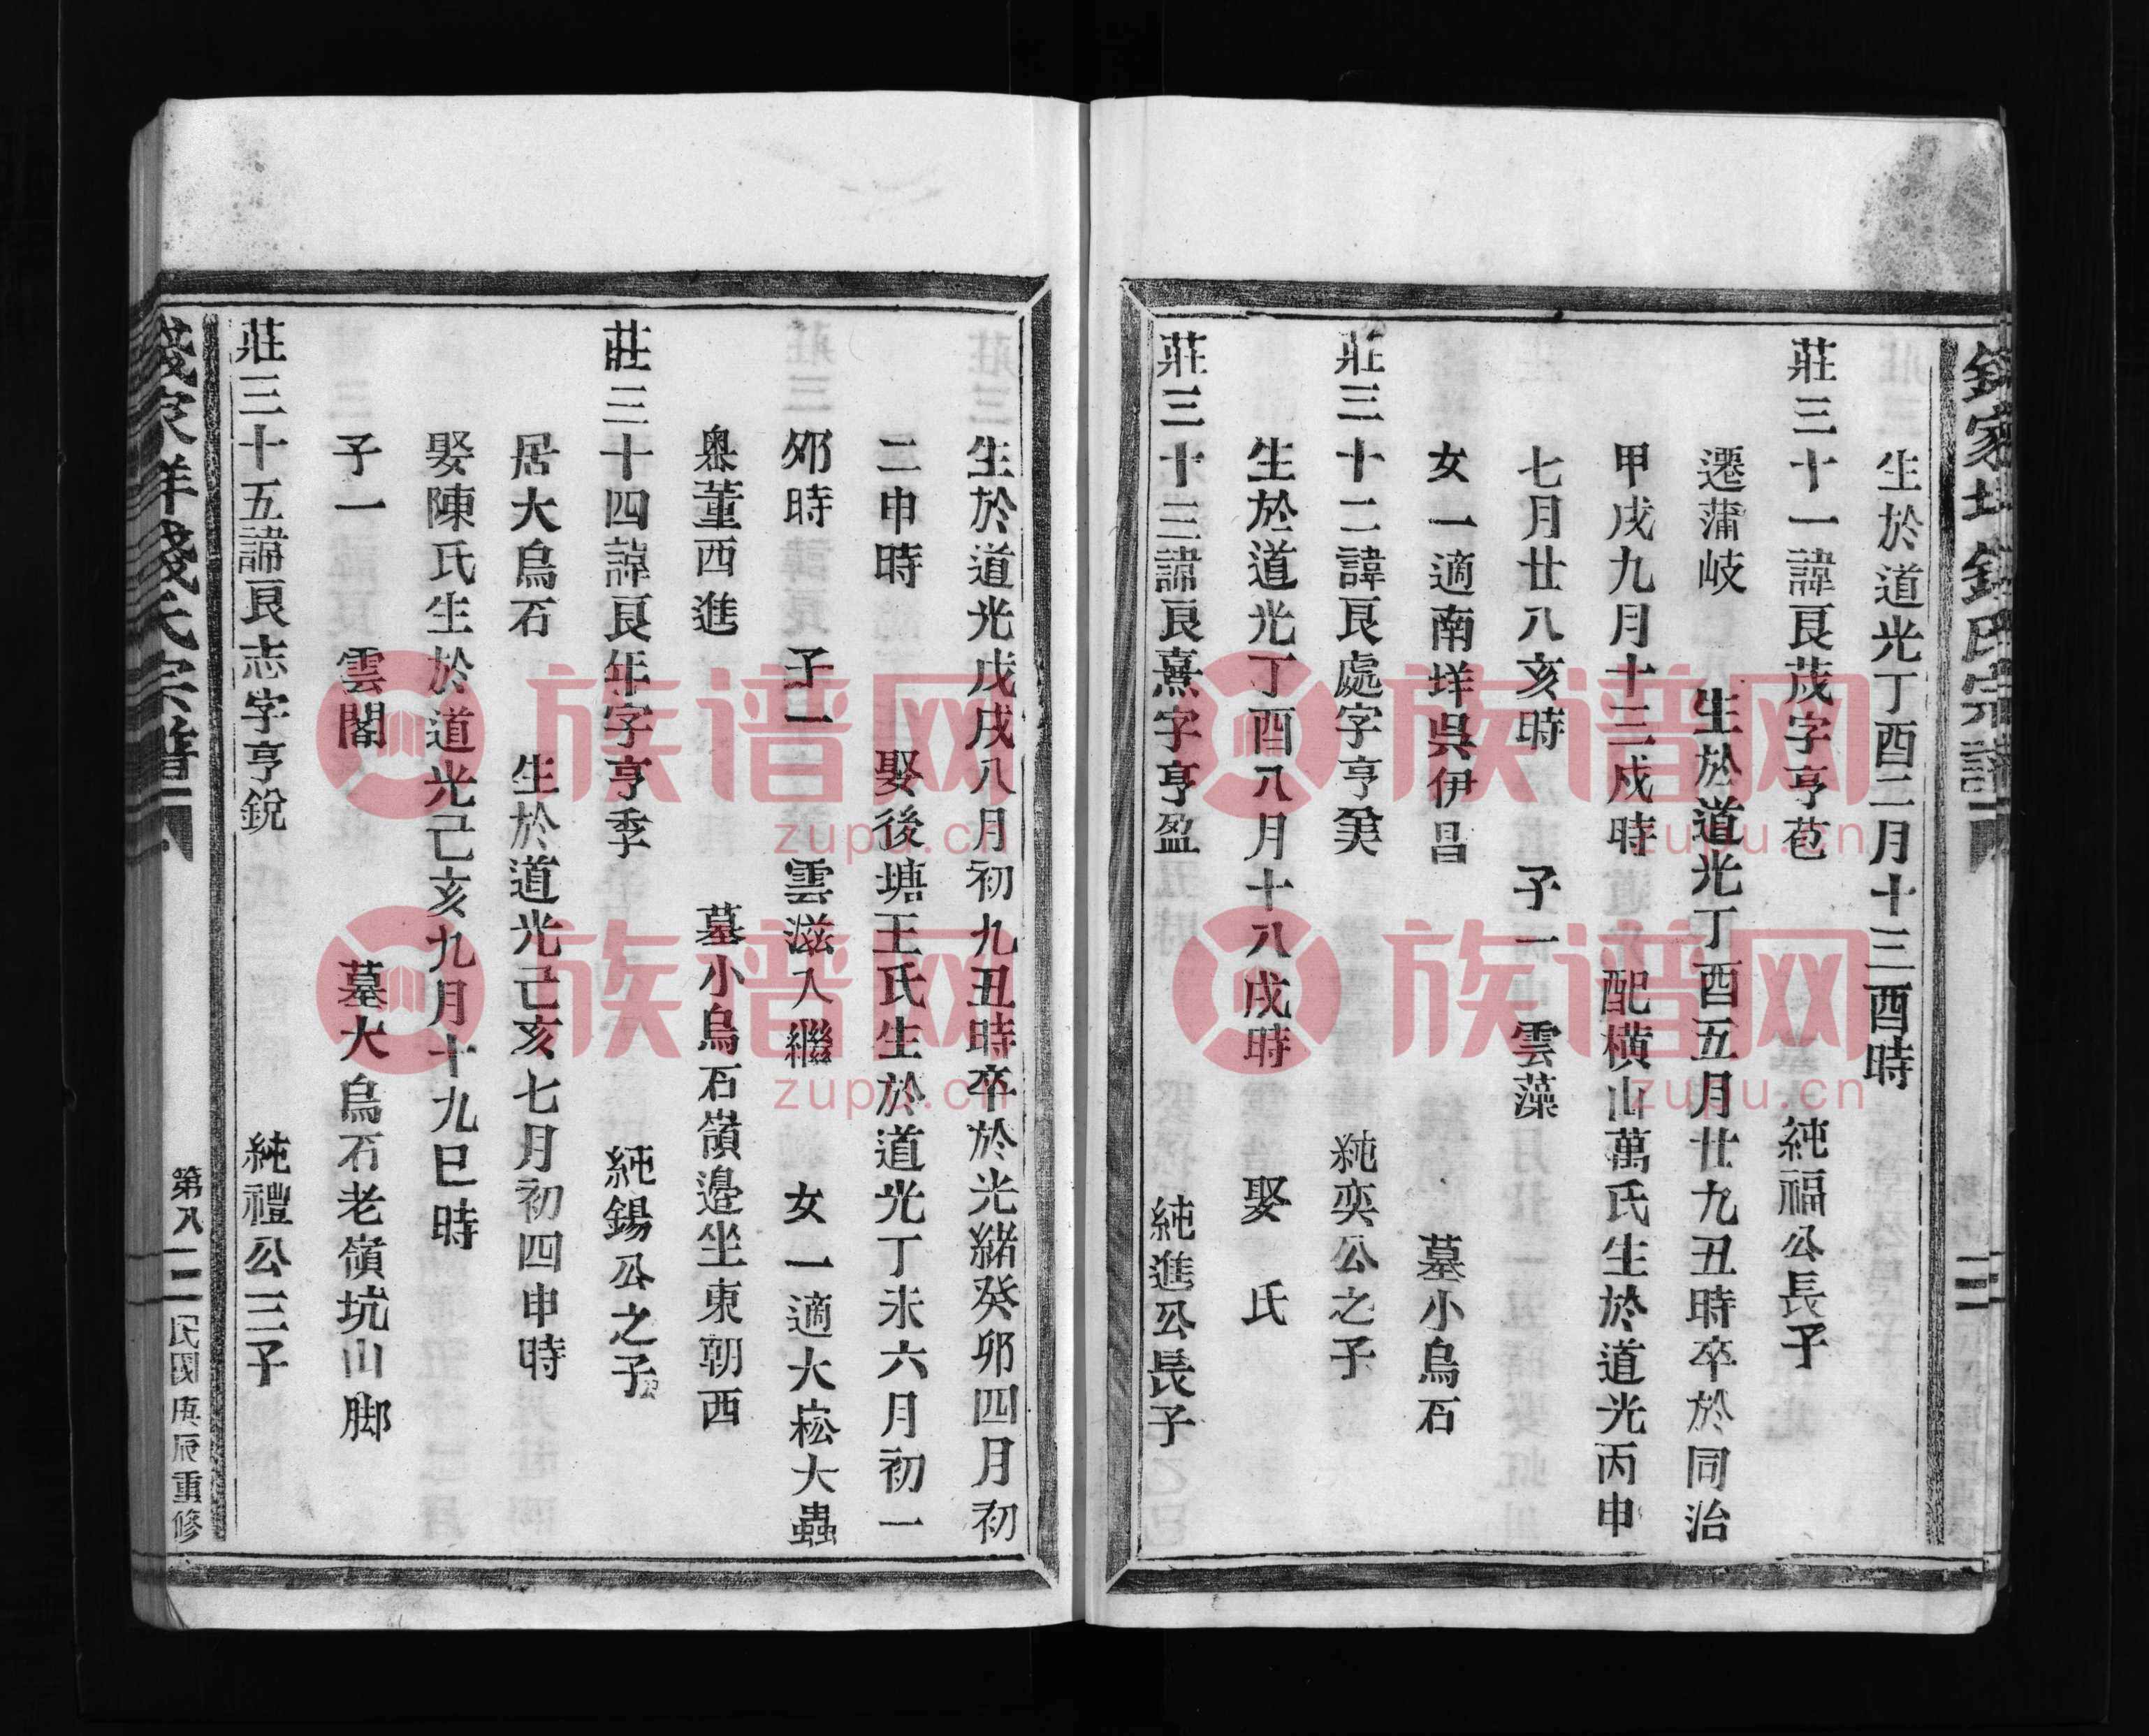 錢家垟錢氏宗譜
生於道光丁酉二月十三酉時
莊三十一諱艮茂字亨苞 純福公長子
遷蒲岐 生於道光丁酉五月廿九丑時卒於同治
甲戌九月十三戌時 配橫山萬氏生於道光丙申
七月廿八亥時 子一 雲藻
女一適南垟吳伊昌 墓小烏石
莊三十二諱艮處字亨美 純奕公之子
生於道光丁酉八月十八戌時 娶 氏
莊三十三諱艮熹字亨盈 純進公長子
生於道光戊戌八月初九丑時卒於光緒癸卯四月初
二申時 娶後塘王氏生於道光丁未六月初一
卯時 子一 雲滋入繼 女一適大崧大蟲
奧董西進 墓小烏石嶺邊坐東朝西
莊三十四諱艮年字亨季 純錫公之子
居大烏石 生於道光己亥七月初四申時
娶陳氏生於道光己亥九月十九巳時
子一 雲閣 墓大烏石老嶺坑山脚
莊三十五諱艮志字亨銳 純禮公三子
錢家垟錢氏宗譜 第八 民國庚辰重修
族谱网
zupu.cn
族谱网
zupu.cn
族谱网
zupu.cn
族谱网
zupu.cn